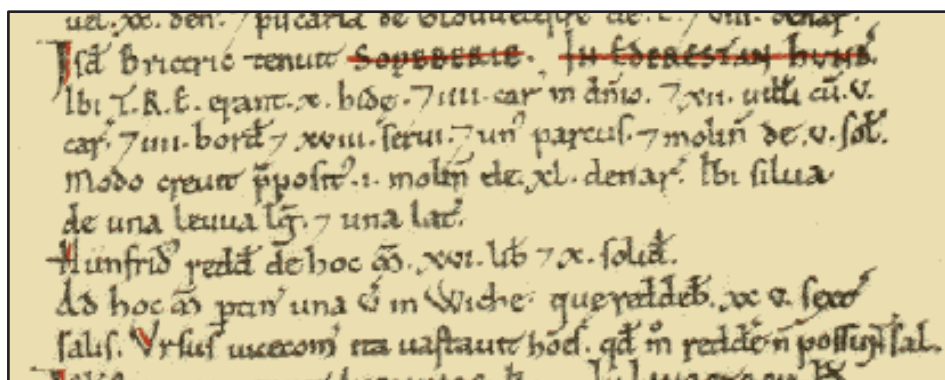 uel .xx. den̄. ⁊ piscaria de Glouuecestre de .L. ⁊ VIII. denar̄.
Isd̄ Brictric tenuit SOPEBERIE. IN EDREDESTAN HVND̄.
Ibi T.R.E. erant .x. hide. ⁊ IIII. car̄ in dn̄io. ⁊ XII. uilli cū .V.
car̄. ⁊ IIII. bord̄ ⁊ XVIII. serui. ⁊ un' parcus. ⁊ molin̄ de .V. sol'.
Modo creuit p̄posit'. I. molin̄ de .XL. denar̄. Ibi silua
de una leuua lḡ. ⁊ una lat̄.
Hunfrid' redd̄ de hoc m̄. XVI. lib ⁊ X. solid̄.
Ad hoc m̄ ptin̄ una v̄ in Wiche que reddeb̄. XXV. sext'
salis. Vrsus uicecom̄ ita uastauit hoēs. qd̄ m̊ reddere n̄ possunt sal.